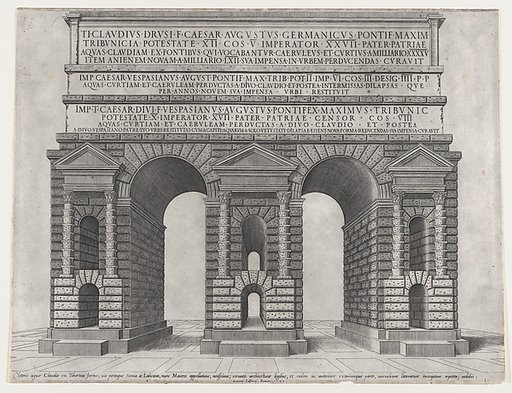 TI·CLAVDIVS·DRVSI·F·CAESAR·AVGVSTVS·GERMANICVS·PONTIF·MAXIM
TRIBVNICIA·POTESTATE·XII·COS·V·IMPERATOR·XXVII·PATER·PATRIAE
AQVAS·CLAVDIAM·EX·FONTIBVS·QVI·VOCABANTVR·CAERVLEVS·ET·CVRTIVS·A·MILLIARIO·XXXXV
ITEM ANIENEM·NOVAM·A·MILLIARIO·LXII·SVA IMPENSA·IN·VRBEM·PERDVCENDAS·CVRAVIT
IMP·CAESAR·VESPASIANVS·AVGVST·PONTIF·MAX·TRIB·POT·II·IMP·VI·COS·III·DESIG·IIII·P·P
AQVAS·CVRTIAM·ET·CAERVLEAM·PERDVCTAS·A·DIVO·CLAVDIO·ET·POSTEA·INTERMISSAS·DILAPSAS·QVE
PER·ANNOS·NOVEM·SVA·IMPENSA·VRBI·RESTITVIT
IMP·T·CAESAR·DIVI·F·VESPASIANVS·AVGVSTVS·PONTIFEX·MAXIMVS·TRIBVNIC
POTESTATE·X·IMPERATOR·XVII·PATER·PATRIAE·CENSOR·COS·VIII
AQVAS·CVRTIAM·ET·CAERVLEAM·PERDVCTAS·A·DIVO·CLAVDIO·ET·POSTEA
A·DIVO·VESPASIANO·PATRE·SVO·VRBI·RESTITVTAS·CVM·A·CAPITE·AQVARVM·A·SOLO·VETVSTATE·DILAPSAE·ESSENT·NOVA·FORMA·REDVCENDAS·SVA·IMPENSA·CVRAVIT
aquae Claudie ex Tiburtini forma, sive portaque Nevia